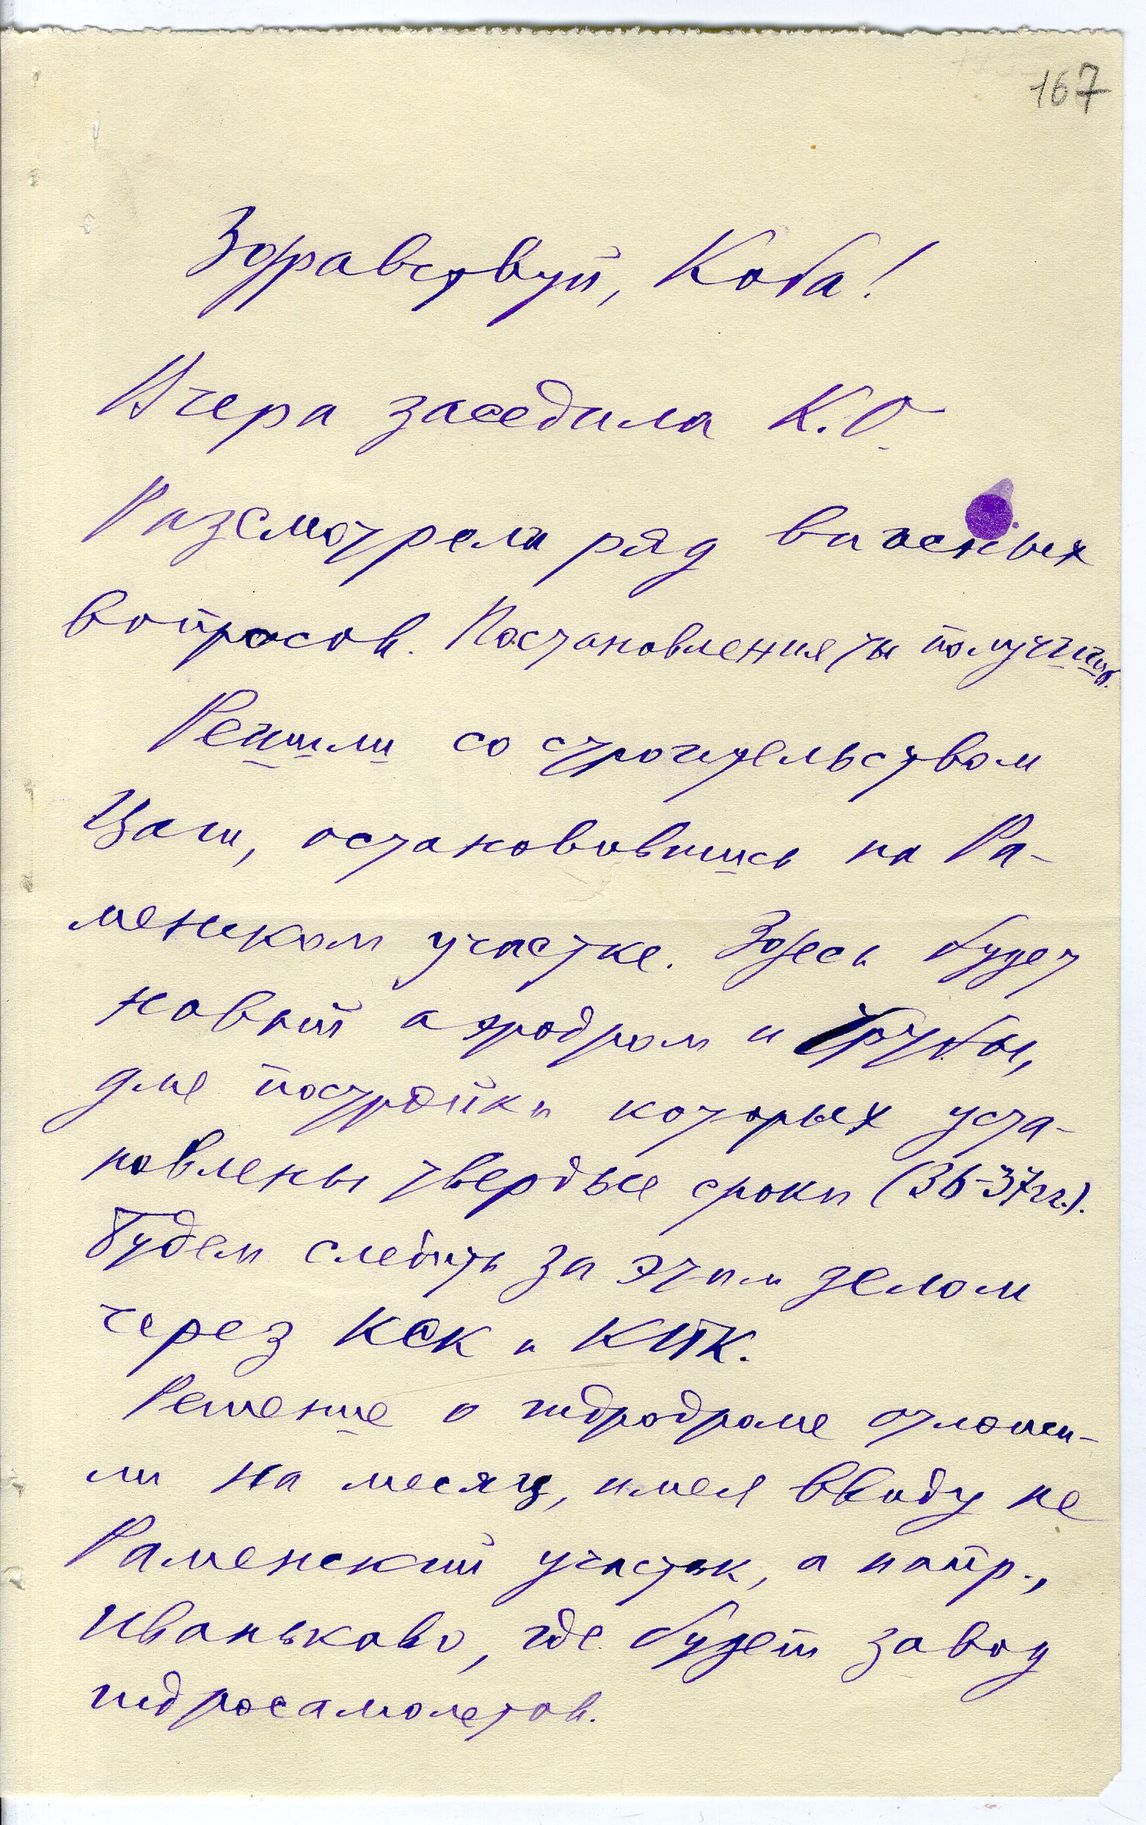 167
Здравствуй, Коба!
Вчера заседала К.О.
Разсмотрели ряд важных
вопросов. Постановления ты получишь.
Решили со строительством
Цаги, остановившись на Ра-
менском участке. Здесь будет
новый аэродром и трубы,
для постройки которых уста-
новлены твердые сроки (36-37 гг.).
Будем следить за этим делом
через КСК и КПК.
Решение о гидродроме отложи-
ли на месяц, имея ввиду не
Раменский участок, а напр.,
Иваньково, где будет завод
гидросамолетов.